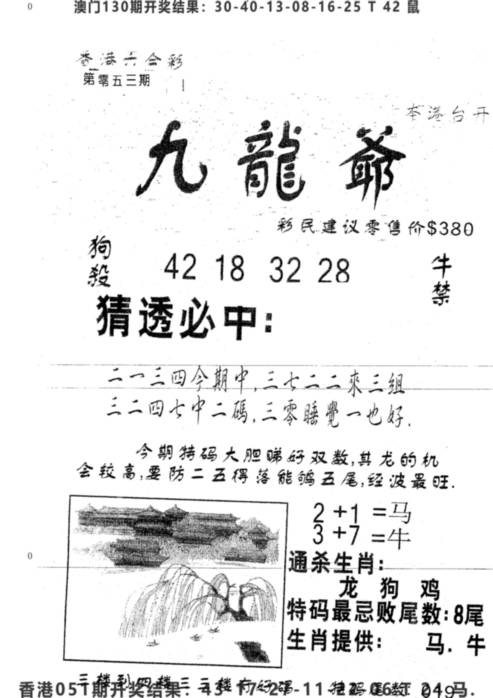 澳门130期开奖结果：30-40-13-08-16-25 T 42 鼠
香港六合彩
第零五三期
本港台开
九龍爺
彩民建议零售价$380
狗殺
42 18 32 28
牛禁
猜透必中：
二一三四今期中,三七二二來三組
三二四七中二碼,三零睡覺一也好.
今期特码大胆睇好双数,其龙的机
会较高,要防二五得落能够五尾,经波最旺.
2+1=马
3+7=牛
通杀生肖：
龙 狗 鸡
特码最忌败尾数:8尾
生肖提供： 马. 牛
香港051期开奖结果：